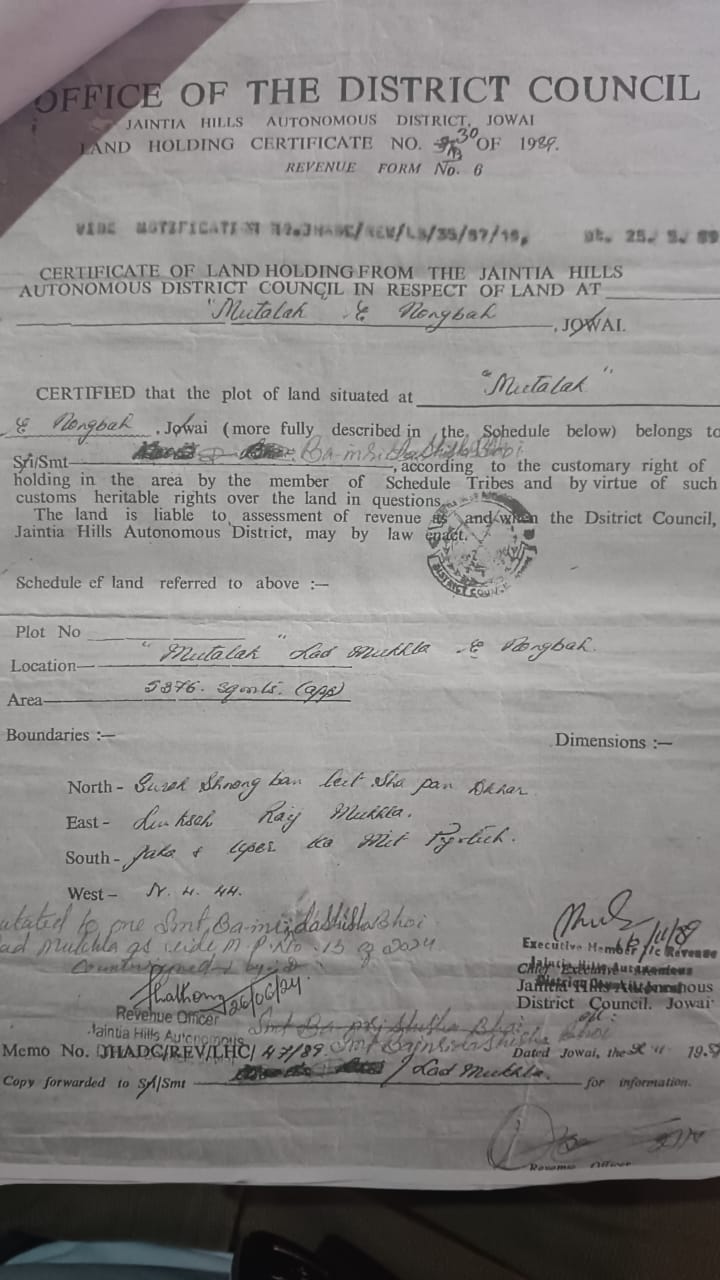 OFFICE OF THE DISTRICT COUNCIL
JAINTIA HILLS AUTONOMOUS DISTRICT, JOWAI
LAND HOLDING CERTIFICATE NO. 30 OF 1989.
REVENUE FORM No. 6
VIDE NOTIFICATION NO.JHADC/REV/LS/35/87/19, Dt. 25. 5. 89
CERTIFICATE OF LAND HOLDING FROM THE JAINTIA HILLS
AUTONOMOUS DISTRICT COUNCIL IN RESPECT OF LAND AT
"Mutalak & Nongbah, JOWAI.
CERTIFIED that the plot of land situated at "Mutalak"
& Nongbah. Jowai (more fully described in the Sohedule below) belongs to
Sri/Smt , according to the customary right of
holding in the area by the member of Schedule Tribes and by virtue of such
customs heritable rights over the land in questions.
The land is liable to assessment of revenue as and when the Dsitrict Council,
Jaintia Hills Autonomous District, may by law enact.
DISTRICT COUNCIL
Schedule ef land referred to above :—
Plot No
Location— "Mutalak" Lad Mukhla & Nongbah.
Area— 5376. sqmts. (app)
Boundaries :—
Dimensions :—
North - Surok Shnong ban leit sha pan Dkhar
East - Raij Mukhla.
South -
West – N. H. 44.
to one Smt, Ba-mi,idaShisha Bhoi
Mukhla as vide M.P.No. 15 of 2024
Countersigned by
26/06/24
Revenue Officer
Jaintia Hills Autonomous
Executive Member i/c Revenue
Jaintia Hills Autonomous
District Council. Jowai
Memo No. JHADC/REV/LHC/ 47/89. Dated Jowai, the 198
Copy forwarded to Sri/Smt Lad Mukhla. for information.
Revenue Officer